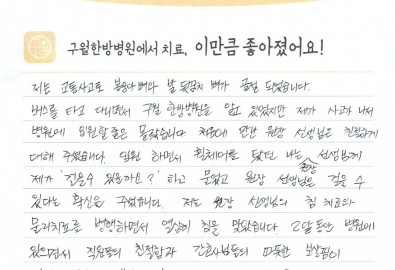 구월한방병원에서 치료, 이만큼 좋아졌어요!
저는 교통사고로 복숭아뼈와 발 뒷꿈치 뼈가 골절 되었습니다.
버스를 타고 다니면서 구월 한방병원을 알고 있었지만 제가 사고가 나서
병원에 입원할 줄은 몰랐습니다 처음에 만난 원장 선생님은 친절하게
대해 주셨습니다. 입원 하면서 휠체어를 탔던 나는 원장 선생님께
제가 "걸을수 있을까요?" 하고 물었고 원장 선생님은 걸을 수
있다는 확신을 주셨습니다. 저는 원장 선생님의 침 치료와
물리치료를 병행하면서 열심히 침을 맞았습니다. 2달동안 병원에
있으면서 직원들의 친절함과 간호사님들의 따뜻한 보살핌이